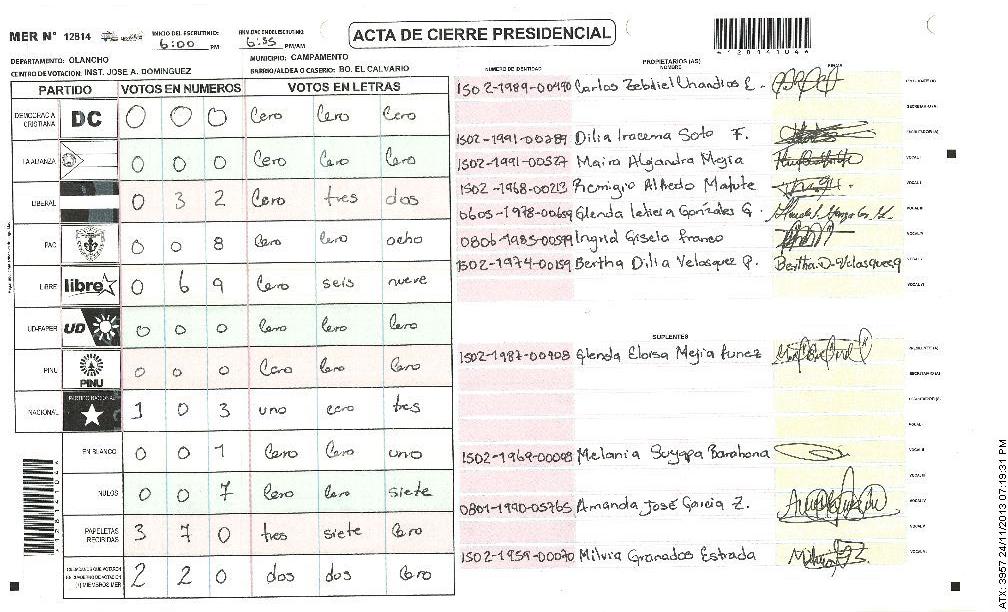 MER N° 12814
INICIO DEL ESCRUTINIO: 6:00 PM
6:55 PM/AM
ACTA DE CIERRE PRESIDENCIAL
DEPARTAMENTO: OLANCHO
MUNICIPIO: CAMPAMENTO
CENTRO DE VOTACION: INST. JOSE A. DOMINGUEZ
BARRIO/ALDEA O CASERIO: BO. EL CALVARIO
PARTIDO VOTOS EN NUMEROS VOTOS EN LETRAS
DEMOCRACIA CRISTIANA DC 0 0 0 Cero Cero Cero
LA ALIANZA 0 0 0 Cero Cero Cero
LIBERAL 0 3 2 Cero tres dos
PAC 0 0 8 Cero Cero ocho
LIBRE libre 0 6 9 Cero seis nueve
UD-FAPER UD 0 0 0 Cero Cero Cero
PINU PINU 0 0 0 Cero Cero Cero
NACIONAL PARTIDO NACIONAL 1 0 3 uno cero tres
EN BLANCO 0 0 1 Cero Cero uno
NULOS 0 0 7 Cero Cero siete
PAPELETAS RECIBIDAS 3 7 0 tres siete Cero
CIUDADANOS QUE VOTARON EN CUADERNO DE VOTACION (+) MIEMBROS MER 2 2 0 dos dos Cero
NUMERO DE IDENTIDAD PROPIETARIOS (AS) NOMBRE FIRMA
1502-1989-00490 Carlos Zebdiel
1502-1991-00289 Dilia Iracema Soto F.
1502-1991-00527 Maira Alejandra Mejia
1502-1968-00213 Remigio Alfredo Matute
0605-1978-00659 Glenda Gonzales G.
0806-1985-00599 Ingrid Gisela Franco
1502-1974-00159 Bertha Dilia Velasquez P. Bertha.D.Velasquez
SUPLENTES
1502-1987-00908 Glenda Elorsa Mejia Funez
1502-1969-00098 Melania Suyapa Barahona
0801-1990-05765 Amanda José Garcia Z.
1502-1959-00070 Milvia Granados Estrada
ATX: 3957 24/11/2013 07:19:31 PM